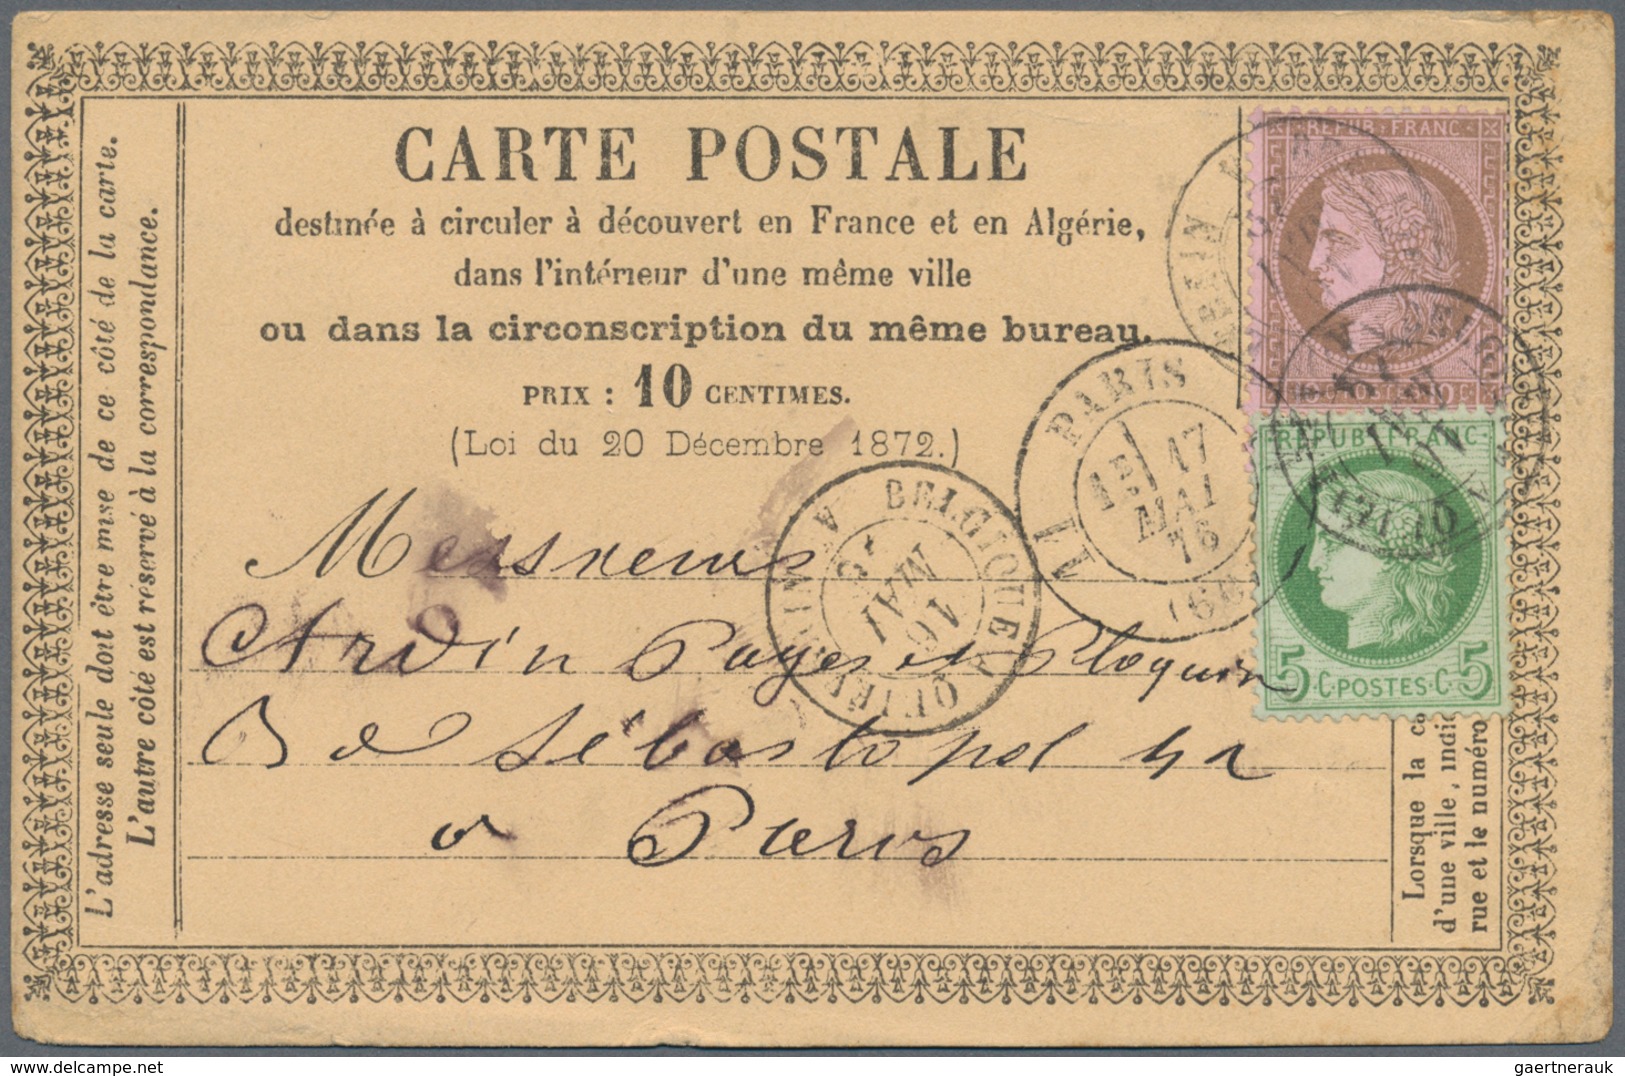 CARTE POSTALE
destinée à circuler à découvert en France et en Algérie,
dans l'intérieur d'une même ville
ou dans la circonscription du même bureau.
PRIX : 10 CENTIMES.
(Loi du 20 Décembre 1872.)
L'adresse seule doit être mise de ce côté de la carte.
L'autre côté est réservé à la correspondance.
REPUB. FRANC.
REPUB. FRANC.
5 C. POSTES. C. 5
PARIS
17
MAI
75
BELGIQUE A
16
MAI
Messieurs
Ardin Payes et Ploquin
B d Sébastopol 42
a Paris
Lorsque la ca
d'une ville, indi
rue et le numéro
gaertnerauk